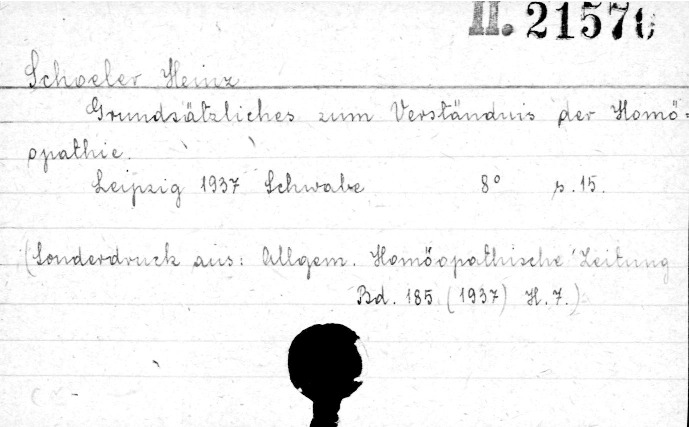 II. 21576
Schoeler Heinz
Grundsätzliches zum Verständnis der Homö=
opathie.
Leipzig 1937 Schwabe 8° p. 15.
(Sonderdruck aus: Allgem. Homöopathische Zeitung
Bd. 185 (1937) H. 7.)